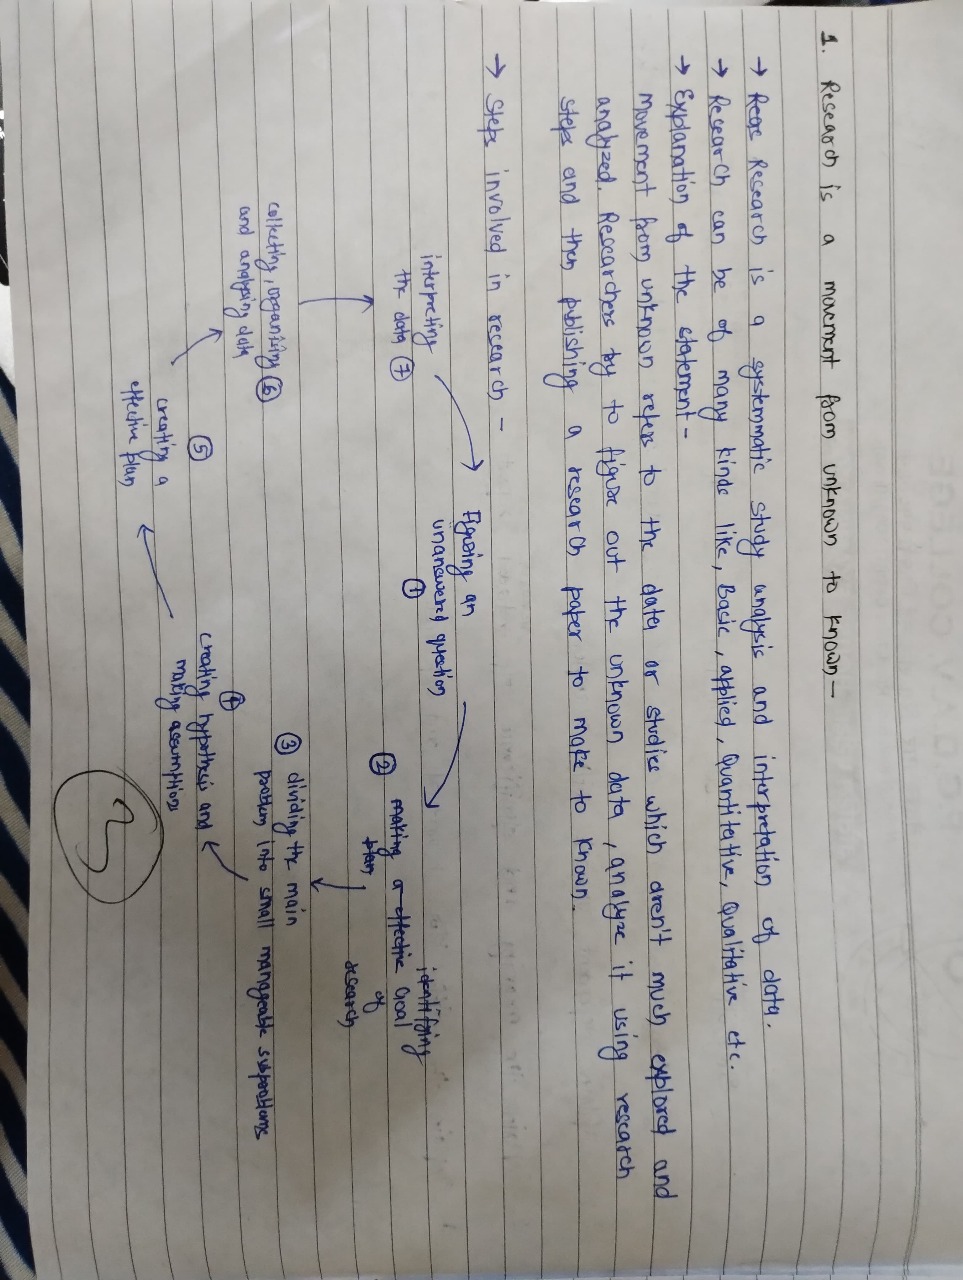 1. Research is a movement from unknown to known -
→ Research is a systemmatic study analysis and interpretation of data.
→ Research can be of many kinds like, Basic, applied, Quantitative, Qualitative etc.
→ Explanation of the statement -
movement from unknown refers to the data or studies which aren't much explored and
analyzed. Researchers try to figure out the unknown data, analyze it using research
steps and then publishing a research paper to make to known.
→ Steps involved in research -
Figuring an
unanswered question
①
identifying
② making a effective Goal
plan of
research
③ dividing the main
problem into small manageable subproblems
④
creating hypothesis and
making assumptions
⑤
creating a
effective plan
collecting, organizing ⑥
and analysing data
interpreting
the data ⑦
3